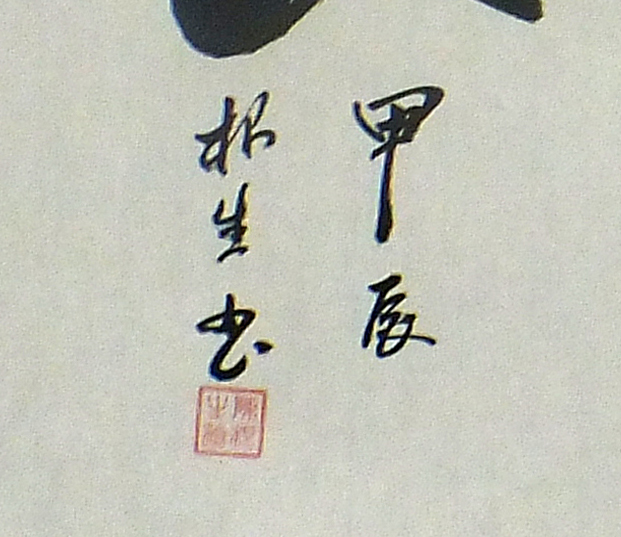 甲辰
根生书